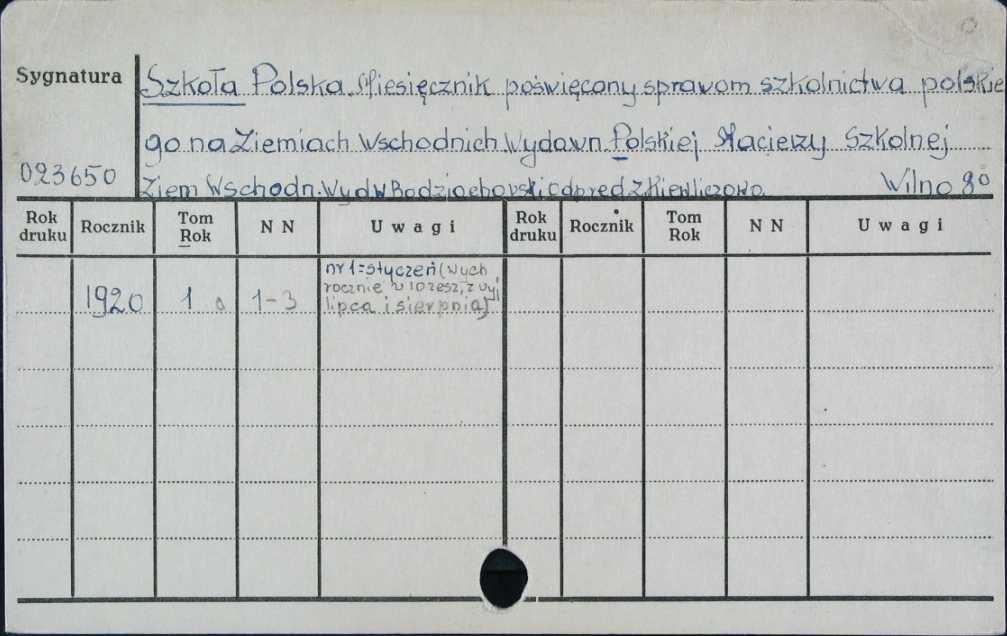 Sygnatura
Szkoła Polska. Miesięcznik poświęcony sprawom szkolnictwa polskie
go na Ziemiach Wschodnich Wydawn. Polskiej Macierzy Szkolnej
023650
Ziem Wschodn. Wydw Wilno 8°
Rok druku Rocznik Tom Rok N N Uwagi Rok druku Rocznik Tom Rok N N Uwagi
nr 1=styczeń (wych
rocznie w 10 zesz, z wyj
1920 1 1-3 lipca i sierpnia)